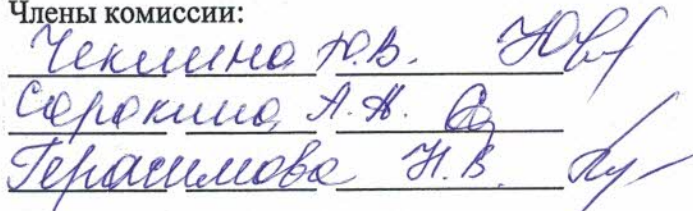 Члены комиссии:
Чеклина Ю.В.
Сорокина А.Н.
Герасимова Н.В.